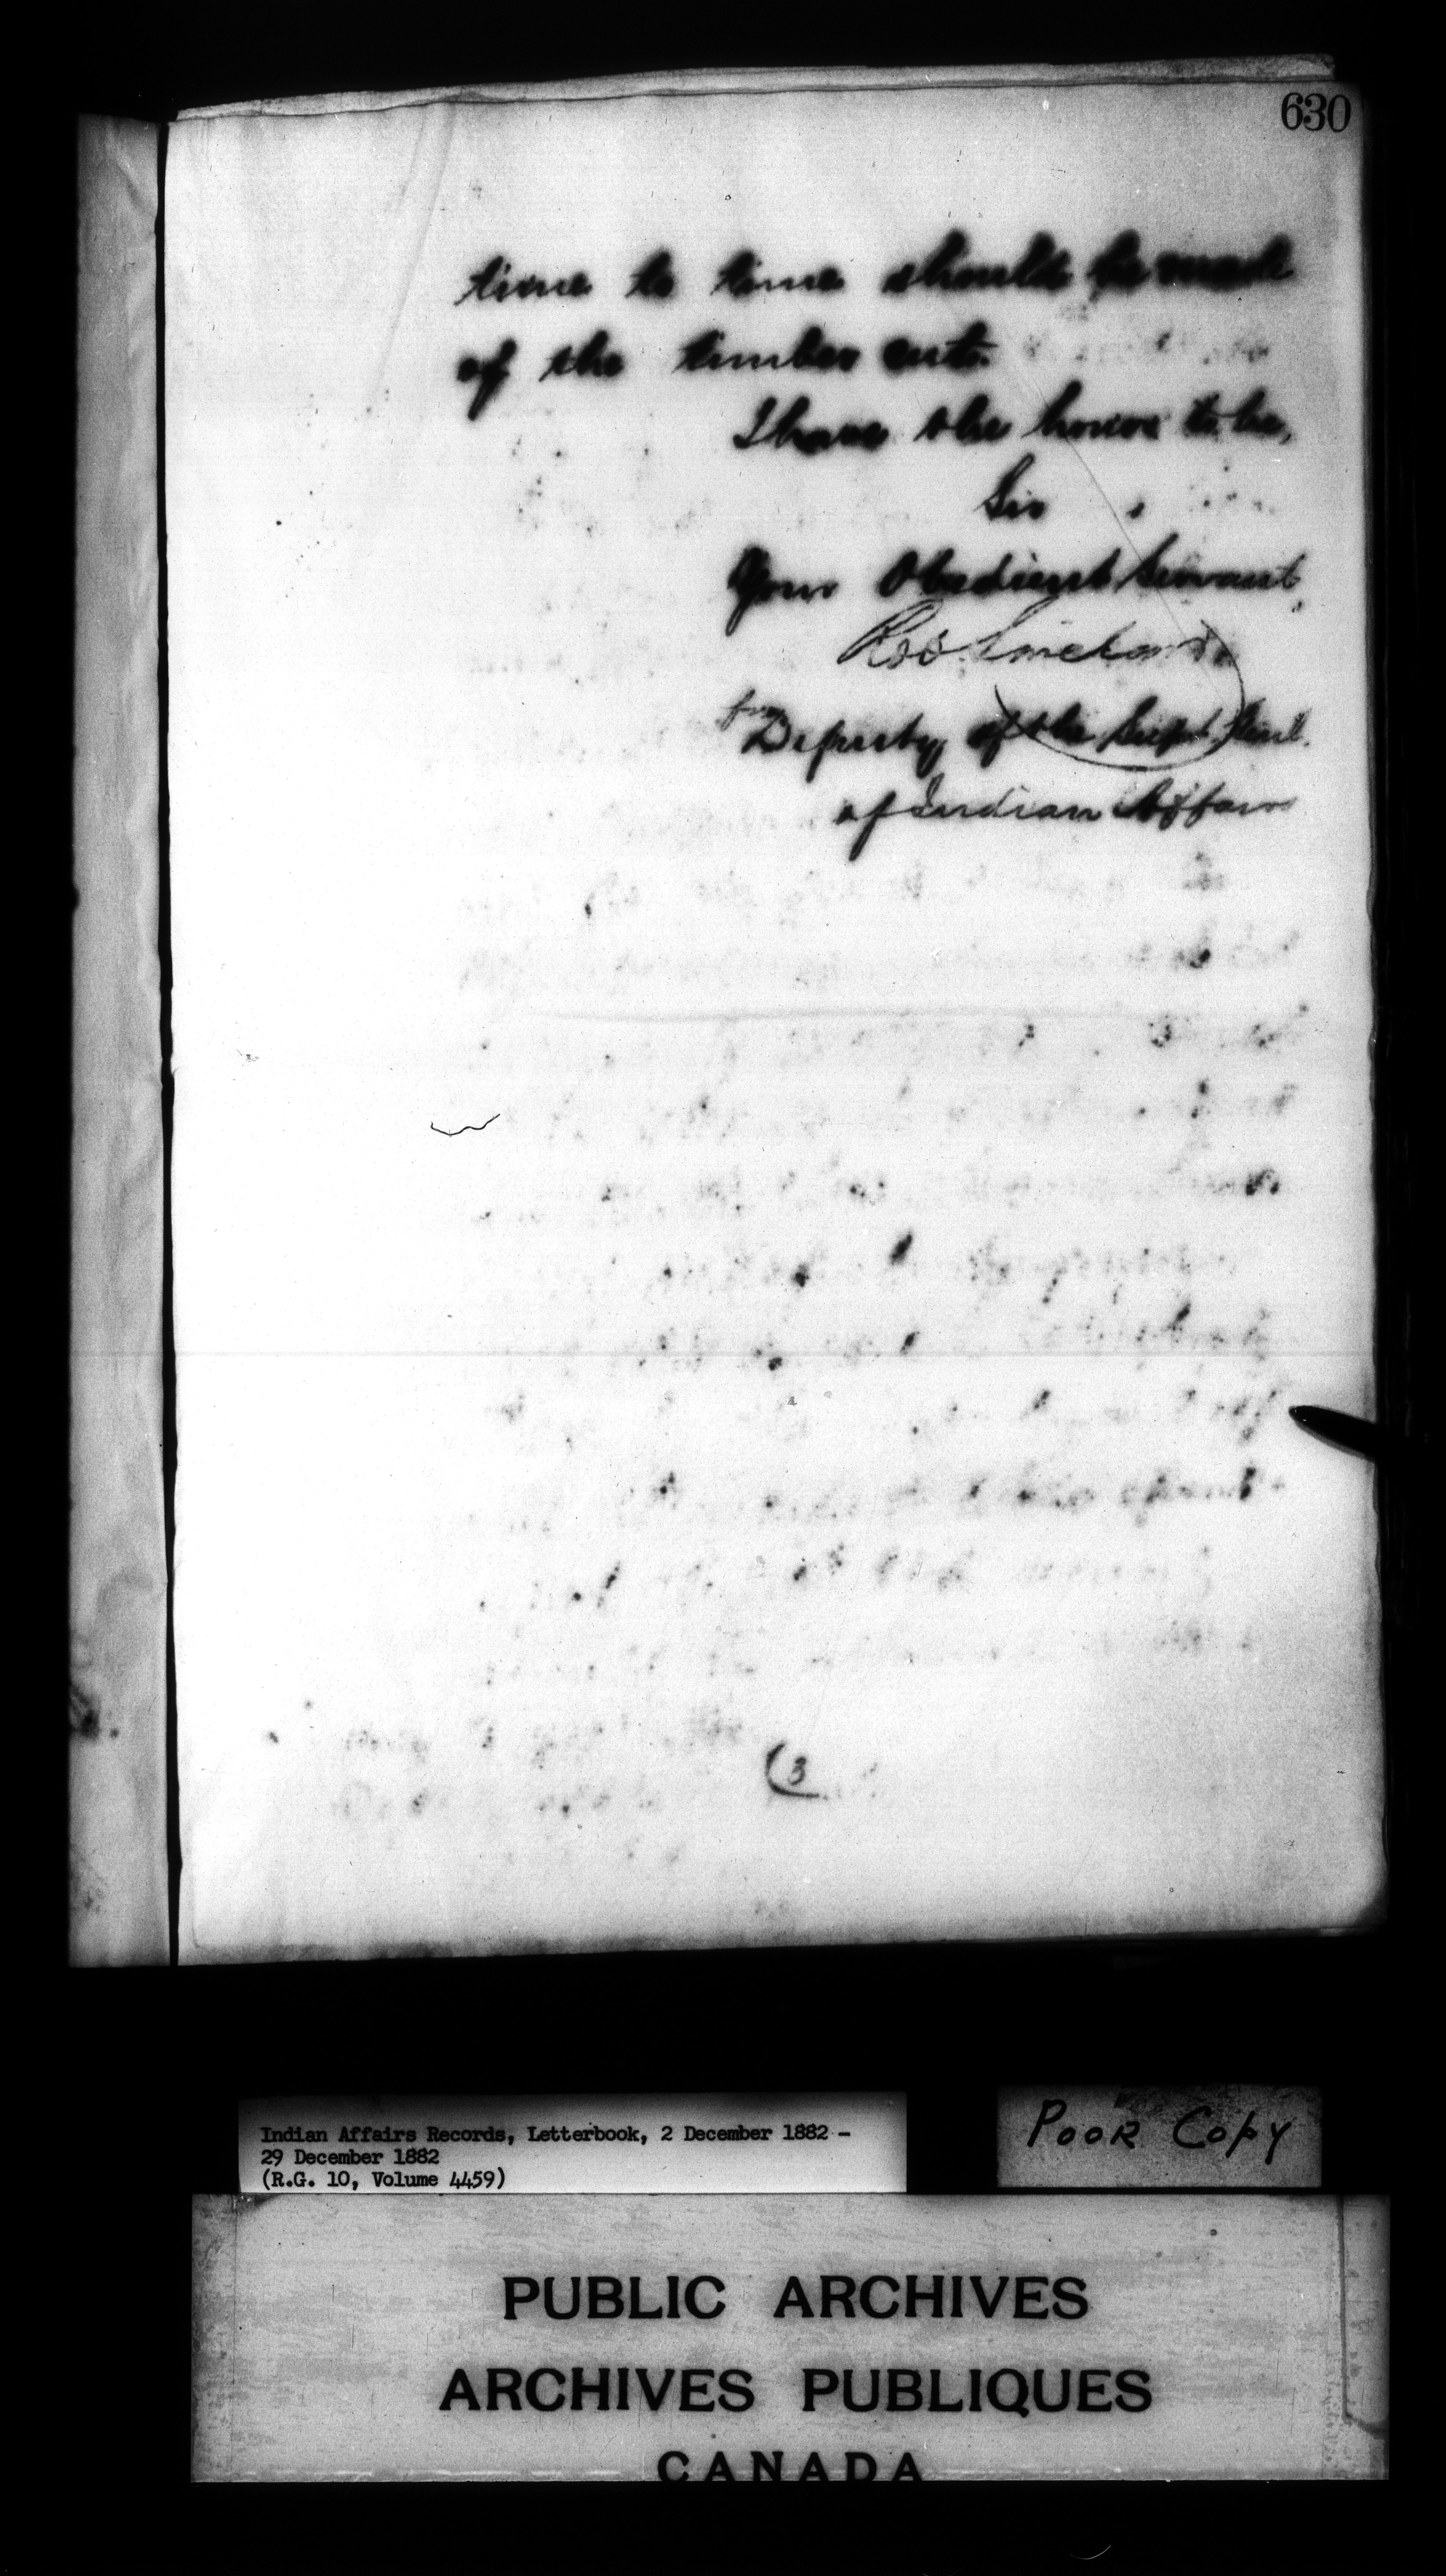 630
time to time should be made
of the timber cut.
I have the honor to be,
Sir
Your Obedient Servant,
Rob Sinclair
for
Deputy of the Supt. Genl.
of Indian Affairs
(3
Indian Affairs Records, Letterbook, 2 December 1882 -
29 December 1882
(R.G. 10, Volume 4459)
POOR COPY
PUBLIC ARCHIVES
ARCHIVES PUBLIQUES
CANADA